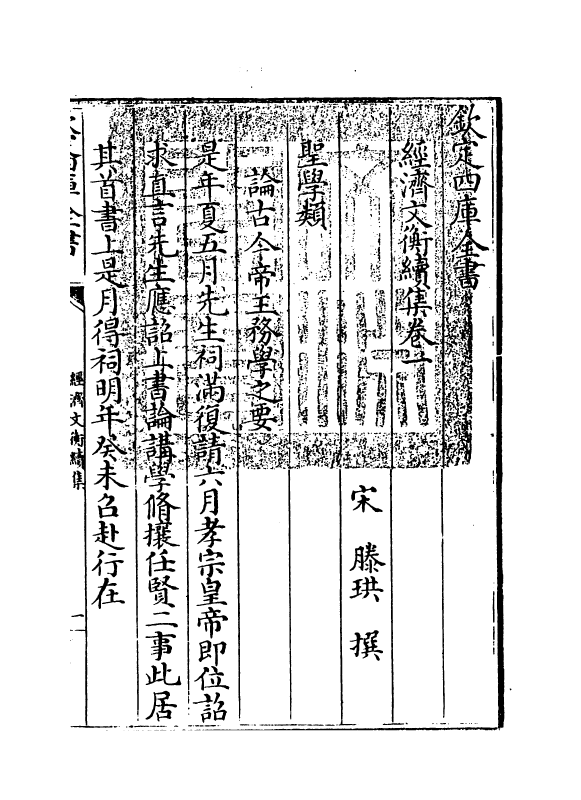 欽定四庫全書
經濟文衡續集卷一
宋 滕珙 撰
聖學類
論古今帝王務學之要
是年夏五月先生祠滿復請六月孝宗皇帝即位詔
求直言先生應詔上書論講學脩攘任賢三事此居
其首書上是月得祠明年癸未召赴行在
經濟文衡續集